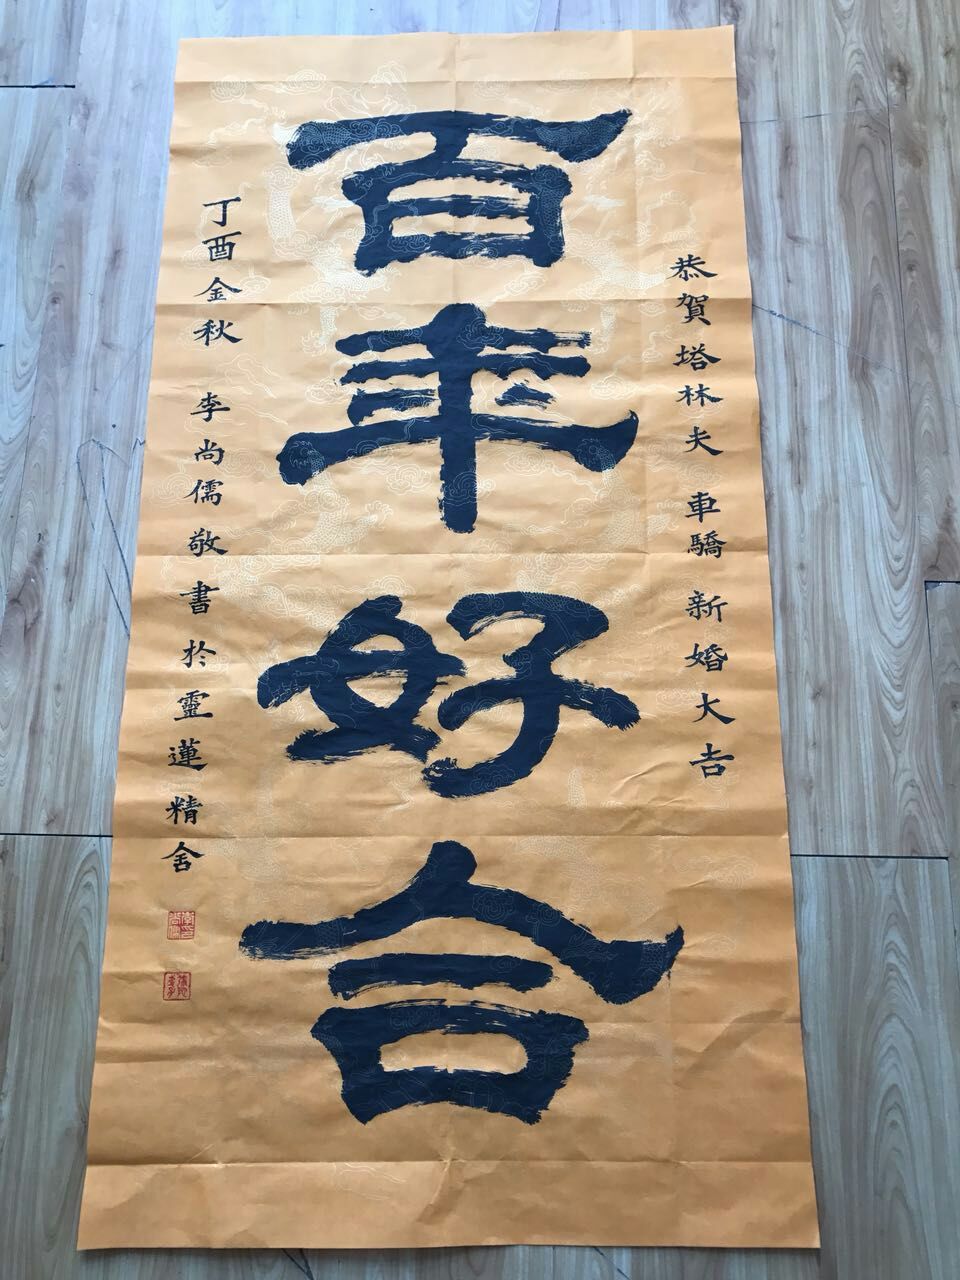 恭賀塔林夫 車驕 新婚大吉
百年好合
丁酉金秋 李尚儒敬書於靈蓮精舍